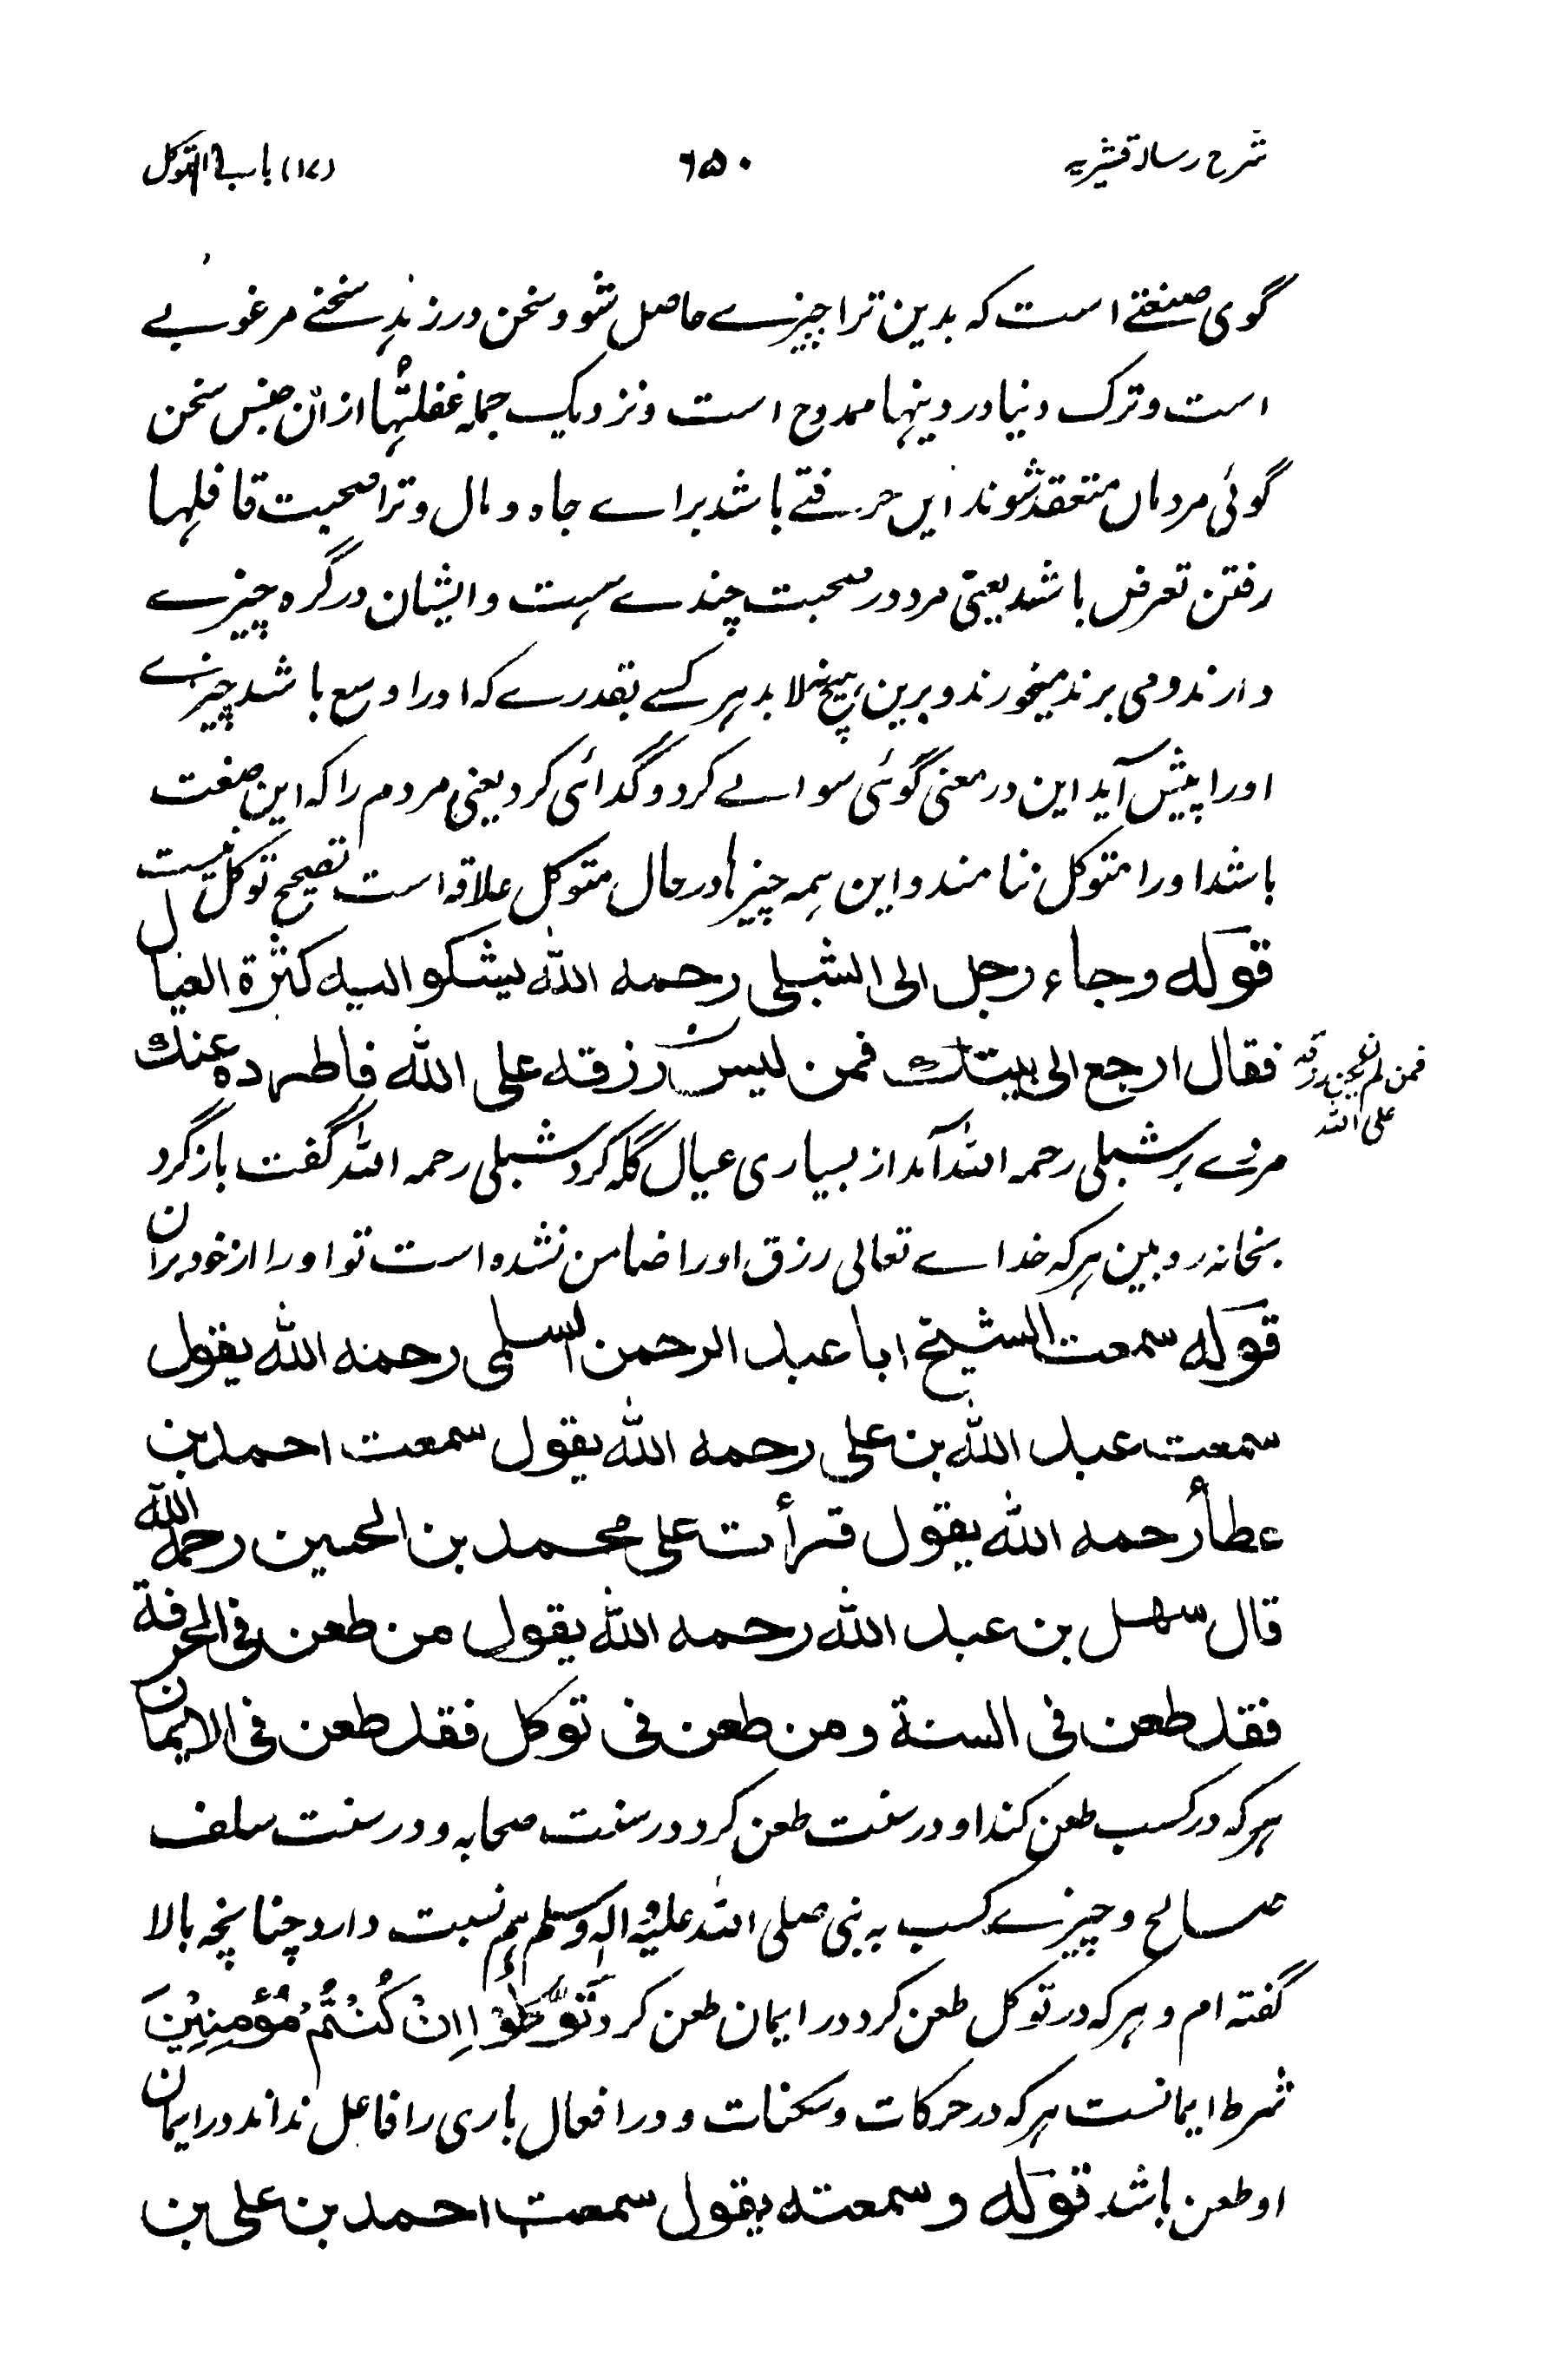 شرح رسالہ قشیریہ
۶۵۰
(۱۷) باب فی التوکل
گوی صنعتے است کہ بدین ترا چیزے حاصل شود سخن در زند سخنے مرغوبے
است و ترک دنیا در دینہا ممدوح است و نزدیک جملہ غفلتہا از ان جنس سخن
گوئی مردماں متعقد شوند این حرفتے باشد براے جاہ و مال و ترا صحبت قافلہا
رفتن تعرض باشد یعنی مرد در صحبت چندے ہست و ایشان در گرہ چیزے
دارند و می برند میخورند و برین پیخ لا بد ہر کسے بقدرے کہ اورا وسع باشد چیزے
اورا پیش آید این در معنی گوئی سوالے کرد و گدائی کرد یعنی مردم را کہ این صفت
باشد اورا متوکل نامند و این ہمہ چیزہا در حال متوکل علاقہ است تصیح توکل نیست
قولہ وجاء رجل الی الشبلی رحمہ اللہ یشکوا الیہ کثرة العیال
فقال ارجع الی بیتک فمن لیس رزقہ علی اللہ فاطردہ عنک
فمن لم یکن رزقہ
علی اللہ
مردے بر شبلی رحمہ اللہ آمد از بسیاری عیال گلہ کرد شبلی رحمہ اللہ گفت باز گرد
بخانہ رو ببین ہر کہ خداے تعالی رزق اورا ضامن نشدہ است تو اورا از خود بران
قولہ سمعت الشیخ ابا عبد الرحمن السلمی رحمہ اللہ یقول
سمعت عبد اللہ بن علی رحمہ اللہ یقول سمعت احمد بن
عطأ رحمہ اللہ یقول قرأت علی محمد بن الحسین رحمہ اللہ
قال سھل بن عبد اللہ رحمہ اللہ یقول من طعن فی الحرفة
فقد طعن فی السنة ومن طعن فی توکل فقد طعن فی الایمان
ہر کہ در کسب طعن کند او در سنت طعن کرد در سنت صحابہ و در سنت سلف
صالح و چیزے کسب بہ نبی صلی اللہ علیہ و الہ وسلم ہم نسبت دارد چنانچہ بالا
گفتہ ام و ہر کہ در توکل طعن کرد در ایمان طعن کرد تَوَکَّلُوْا اِنْ کُنْتُمْ مُؤْمِنِیْنَ
شرط ایمانست ہر کہ در حرکات و سکنات و در افعال باری را فاعل نداند در ایمان
او طعن باشد قولہ وسمعتہ یقول سمعت احمد بن علی بن